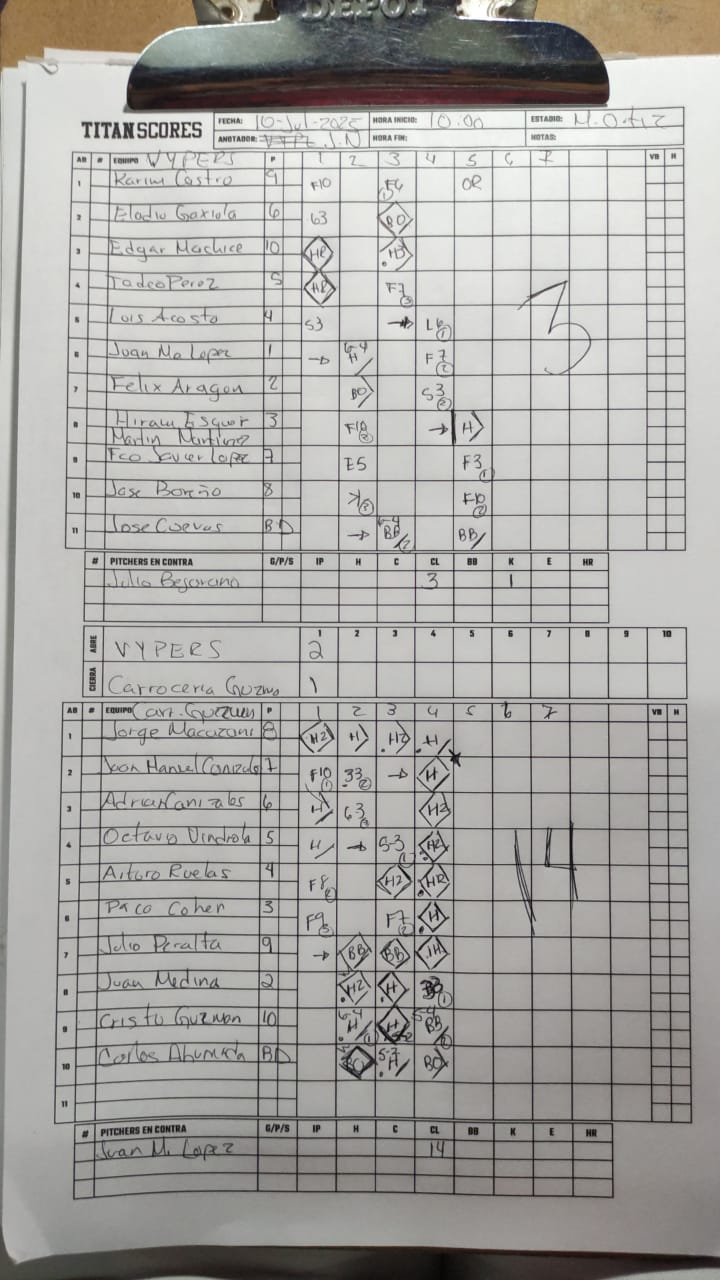 DEPOT
TITAN SCORES
FECHA: 10-Jul-2025 HORA INICIO: 10:00 ESTADIO: M. Ortiz
ANOTADOR: J.N HORA FIN: NOTAS:
AB # EQUIPO VYPERS P 1 2 3 4 5 6 7 VB H
1 Karim Castro 9 F10 F4 OR
2 Eladio Gaxiola 6 63 BO
3 Edgar Machice 10 HR H3
4 Tadeo Perez 5 HR F7 3
5 Luis Acosta 4 53 → L6 1
6 Juan Ma Lopez 1 → 6-4 H F7 2
7 Felix Aragon 2 BO 53
8 Hiram Esquer 3 F10 → H
Martin Martinez
9 Fco Javier Lopez 7 E5 F3 1
10 Jose Boreño 8 K F10 2
11 Jose Cuevas BD → 6-4 BB 2 BB
# PITCHERS EN CONTRA G/P/S IP H C CL BB K E HR
Julio 3 1
1 2 3 4 5 6 7 8 9 10
ABRE VYPERS 2
CIERRA Carroceria Guzman 1
AB # EQUIPO Carr. Guzman P 1 2 3 4 5 6 7 VB H
1 Jorge 8 H2 H H2 H
2 Juan Manuel Canizales 7 F10 1 33 2 → H
3 Adrian Canizales 6 H 63 3 H2
4 Octavio Vindiola 5 H → 5-3 1 HR
5 Arturo Ruelas 4 F8 2 H2 HR
6 Paco Cohen 3 F9 3 F7 2 H
7 Julio Peralta 9 → BB BB H
8 Juan Medina 2 H2 H 1
9 Cristo Guzman 10 6-4 H 1 H 5-4 BB 2
10 Carlos Ahumada BD BO 5-2 H BO
11
3
14
# PITCHERS EN CONTRA G/P/S IP H C CL BB K E HR
Juan M. Lopez 14